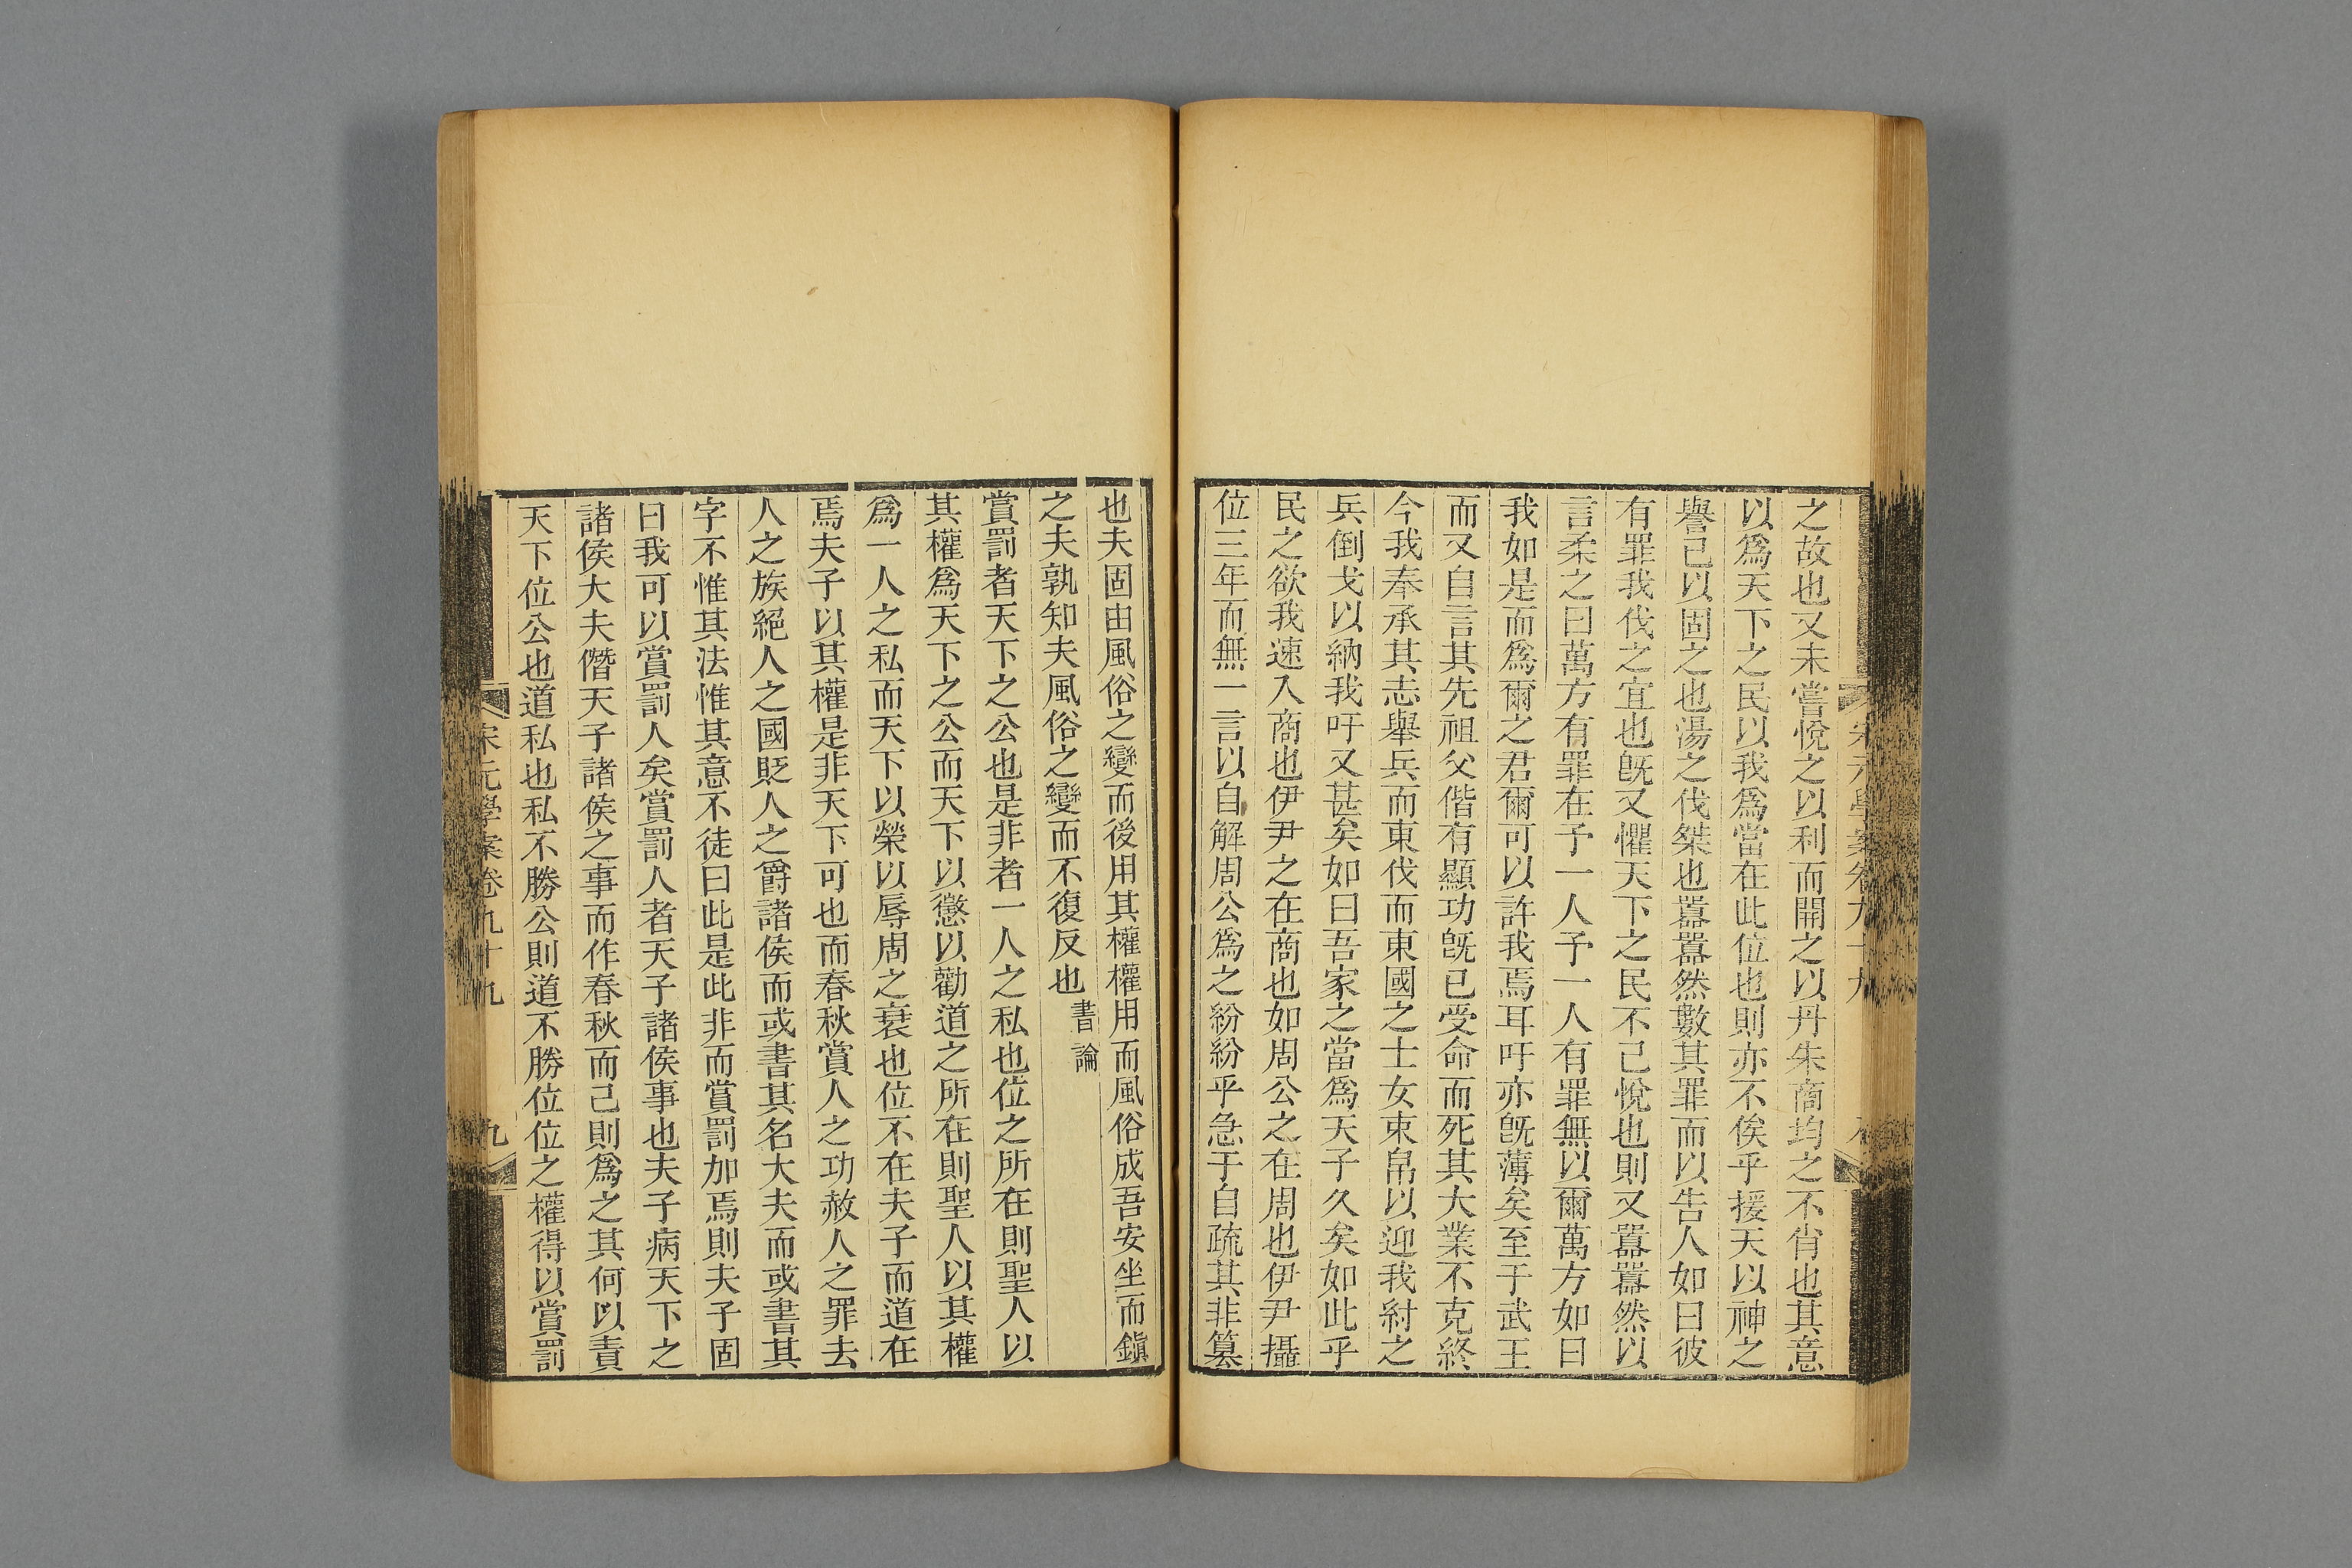 之故也又未嘗悅之以利而開之以丹朱商均之不肖也其意
以爲天下之民以我爲當在此位也則亦不俟乎援天以神之
譽己以固之也湯之伐桀也囂囂然數其罪而以告人如曰彼
有罪我伐之宜也旣又懼天下之民不己悅也則又囂囂然以
言柔之曰萬方有罪在予一人予一人有罪無以爾萬方如曰
我如是而爲爾之君爾可以許我焉耳吁亦旣薄矣至于武王
而又自言其先祖父偕有顯功旣已受命而死其大業不克終
今我奉承其志舉兵而東伐而東國之士女束帛以迎我紂之
兵倒戈以納我吁又甚矣如曰吾家之當爲天子久矣如此乎
民之欲我速入商也伊尹之在商也如周公之在周也伊尹攝
位三年而無一言以自解周公爲之紛紛乎急于自疏其非篡
也夫固由風俗之變而後用其權權用而風俗成吾安坐而鎭
之夫孰知夫風俗之變而不復反也書論
賞罰者天下之公也是非者一人之私也位之所在則聖人以
其權爲天下之公而天下以懲以勸道之所在則聖人以其權
爲一人之私而天下以榮以辱周之衰也位不在夫子而道在
焉夫子以其權是非天下可也而春秋賞人之功赦人之罪去
人之族絕人之國貶人之爵諸侯而或書其名大夫而或書其
字不惟其法惟其意不徒曰此是此非而賞罰加焉則夫子固
曰我可以賞罰人矣賞罰人者天子諸侯事也夫子病天下之
諸侯大夫僭天子諸侯之事而作春秋而己則爲之其何以責
天下位公也道私也私不勝公則道不勝位位之權得以賞罰
宋元學案卷九十九
九